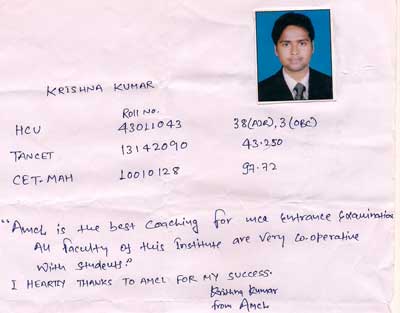 KRISHNA KUMAR
Roll No.
HCU 43011043 38 (AIR), 3 (OBC)
TANCET 13142090 43.250
CET-MAH 10010128 97.72
"AMCL is the best Coaching for mca Entrance Examination
All faculty of this Institute are very co.operative
with students."
I HEARTLY THANKS TO AMCL FOR MY SUCCESS.
Krishna Kumar
from AMCL